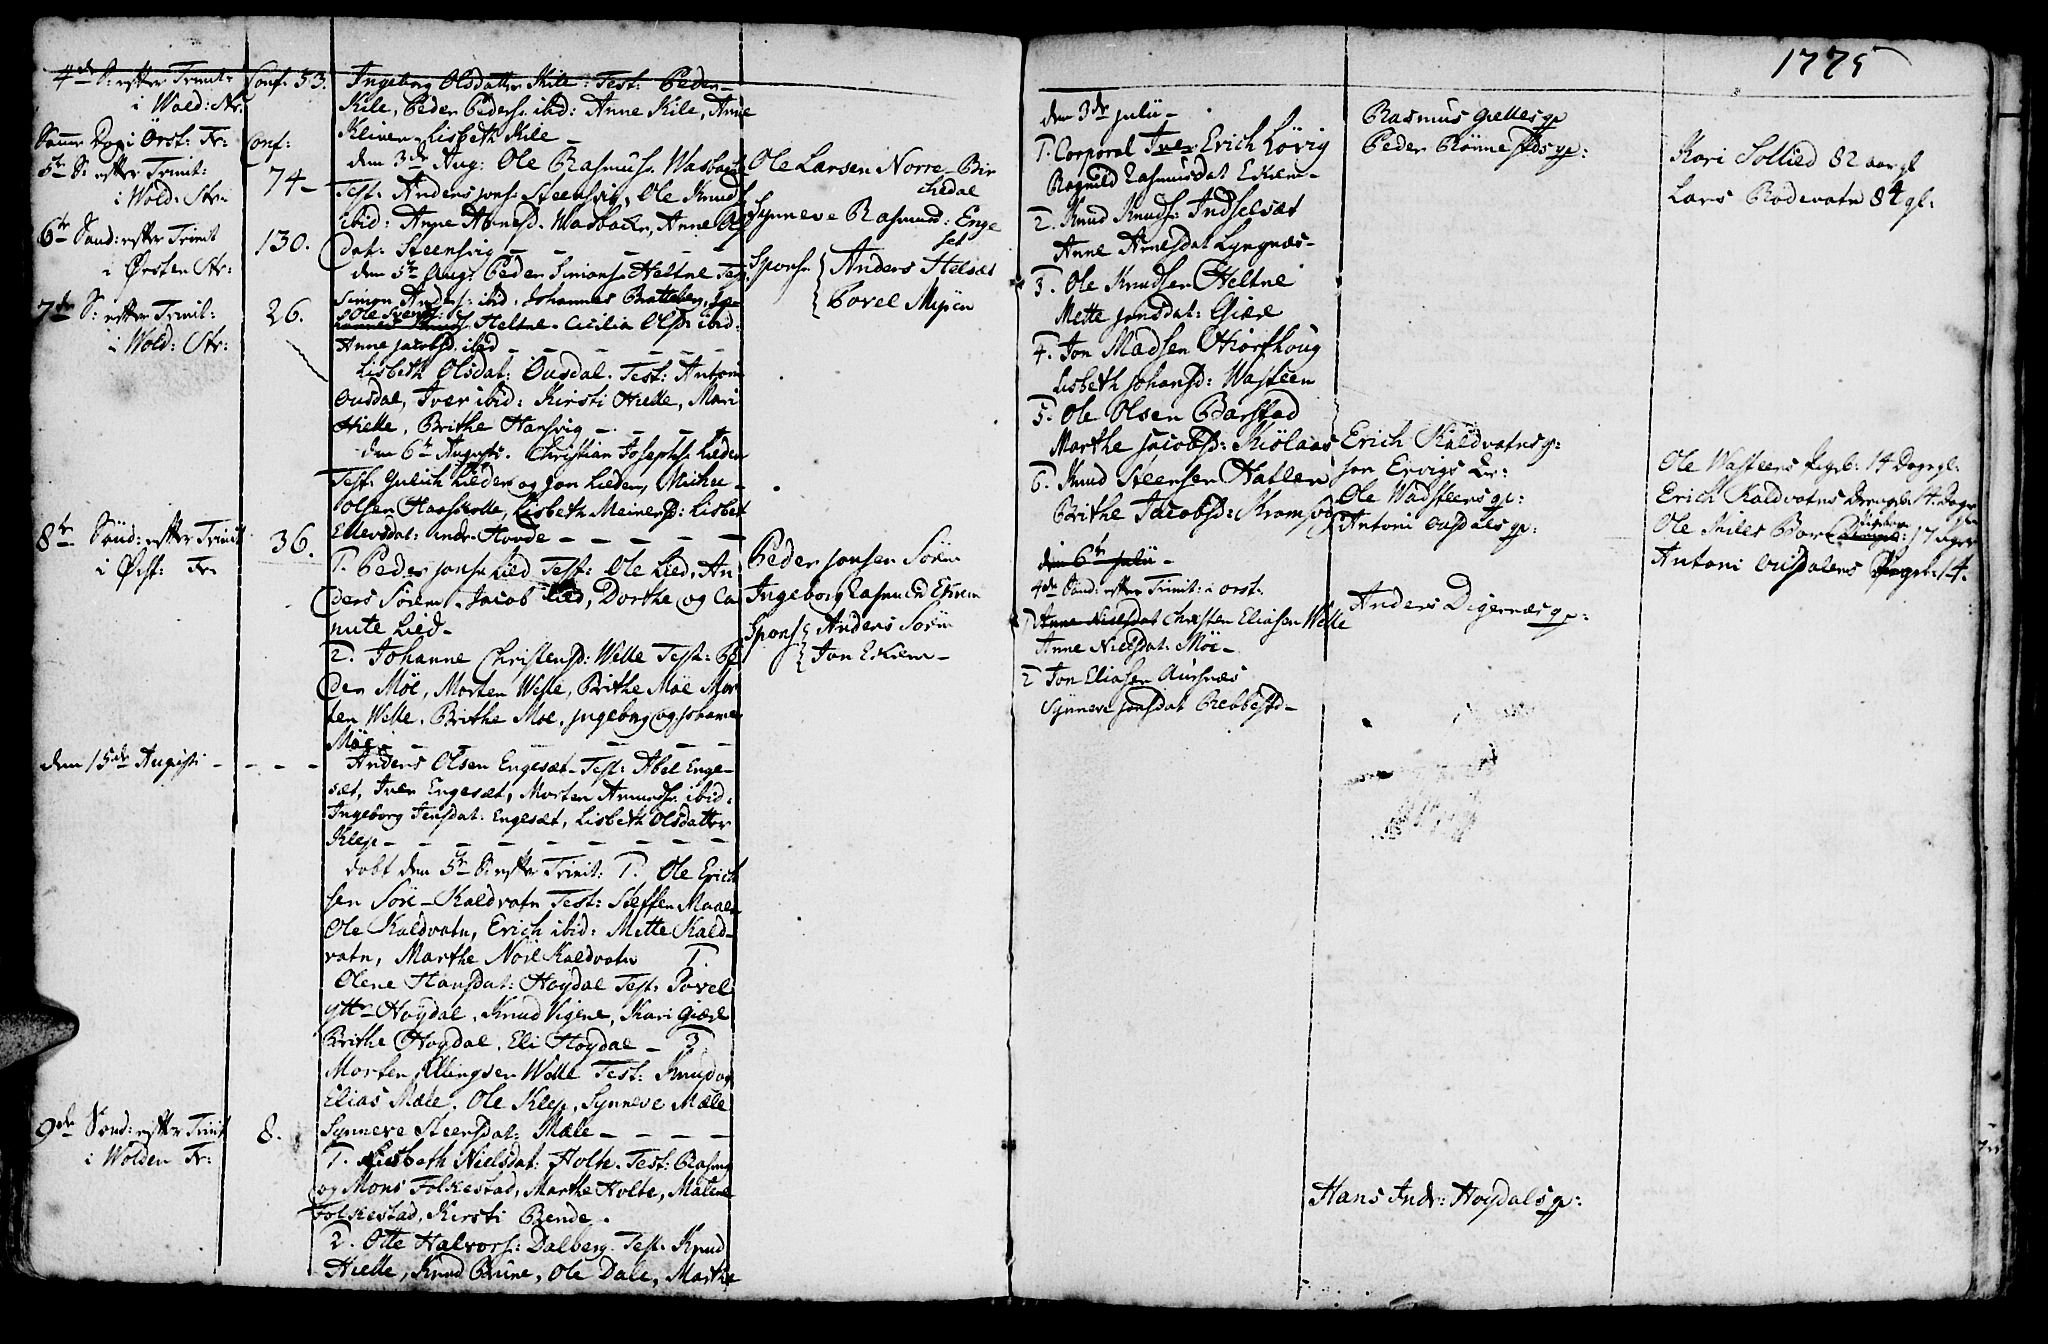 1775
4de S: efter Trinit:
i Wold: Kr:
Samme Dag i Örst: Kr:
5te S: efter Trinit:
i Wold: Kr:
6te Sond: efter Trinit
i Örsten Kr:
7de S: efter Trinit:
i Wold: Kr:
8te Sönd: efter Trinit
i Örst: Kr
den 15de Augusti - - - -
9de Sond: efter Trinit
i Wolden Kr:
Conf. 53.
Conf:
74-
130.
26.
36.
8.
Ingeborg Olsdatter Kile: Test: Peder
Kile, Peder Peders: ibid: Anne Kile, Anne
Kleven, Lisbeth Kile -
den 3de Aug: Ole Rasmus: Wasback
Test: Anders Jons: Steensvig, Ole Knuds
ibid: Anne Arnesd. Wasback, Anne Ols
dat: Steensvig - - - -
den 5te Aug: Peder Simons: Heltne Test
Simon Anders: ibid, Johannes Bratteberg,
Ole Svends:
Heltne. Cicilia Olsd: ibid:
Anne Jacobsd. ibid - - - -
Lisbeth Olsdat: Ousdal. Test: Antoni
Ousdal, Iver ibid: Kirsti Hielle, Mari
Hielle, Brithe Hansvig - - -
den 6te Augusti. Christian Josephs: Lieden
Test: Gulich Lieden og Jon Lieden, Michel
Olsen Haaskolle, Lisbeth Meinersd: Lisbet
Ellersdat: indre Hovde - - - - -
1. Peder Jons: Lied Test: Ole Lied, An
ders Sörem, Jacob Lied, Dorthe og Ca
nute Lied -
2. Johanne Christensd: Welle Test: Pe
der Möe, Morten Welle, Brithe Möe Mor
ten Welle. Brithe Moe, Ingeborg og Johanne
Möe - - - - - -
Anders Olsen Engesæt - Test: Abel Enge-
sæt, Iver Engesæt, Morten Amunds: ibid:
Ingeborg Jensdat: Engesæt, Lisbeth Olsdatter
Klep - - - - - - - -
dobt den 5te S: efter Trinit: 1. Ole Erich
sen Söre-Kaldvatn Test: Steffen Maale
Ole Kaldvatn, Erich ibid: Mette Kald-
vatn, Marthe Nöre Kaldvatn 1.
Olene Hansdat: Hoydal Test: Povel
ytt- Hoydal, Knud Vigene, Kari Giære
Brithe Hoydal. Eli Hoydal - 3
Morten Ellingsen Welle Test: Knud og
Elias Mæle. Ole Klep, Synneve Mæle
Synneve Steensdat: Mæle - - - -
1. Lisbeth Nielsdat: Holte. Test: Rasmus
og Mons Folkestad, Marthe Holte, Malene
Folkestad, Kirsti Bende.
2. Otte Halvors: Dalberg. Test. Knud
Hielle, Knud Brune, Ole Dale, Marthe
Ole Larsen Norre-Bir
chedal
Synneve Rasmusd: Enge
set
Spons: Anders Helsæt
Povel Myren
Peder Jonsen Sörem
Ingeborg Rasmusd Ekrem
Spons: Anders Sörem
Jon Ekrem -
den 3de Julii -
1. Corporal Iver Erich Lövig
Ragnild Rasmusdat Ekrem -
2. Knud Knuds: Indselsæt
Anne Arnesdat Lyngnæs -
3. Ole Knudsen Heltne
Mette Jonsdat: Giære
4. Jon Madsen Hiorthoug
Lisbeth Johansd: Wasteen
5. Ole Olsen Barstad
Marthe Jacobsd: Kiölaas
6. Knud Steensen Hatlen
Brithe Jacobsd: Kramsvo
den 6te Julii -
4de Sond: efter Trinit: i Orst:
1 Anne Nielsdat Christen Eliasen Welle
Anne Nielsdat: Möe -
2 Jon Eliasen Aursnæs
Synneve Jonsdat Rebbestd -
Rasmus Gielles qv
Peder Rönnestds qv:
Erich Kaldvatns qv:
Jon Ervigs qv:
Ole Wadsteens qv:
Antoni Ousdals qv:
Anders Digernæs qv:
Hans Andr: Hoydals qv:
Kari Sollied 82 aar gl
Lars Rodevatn 84 gl:
Ole Wasteens Pigeb: 14 Dage gl:
Erich Kaldvatns Drengeb: 14 Dage
Ole Kiles Barn Pigebn: 17 dager
Antoni Ousdalens Pigeb: 14.